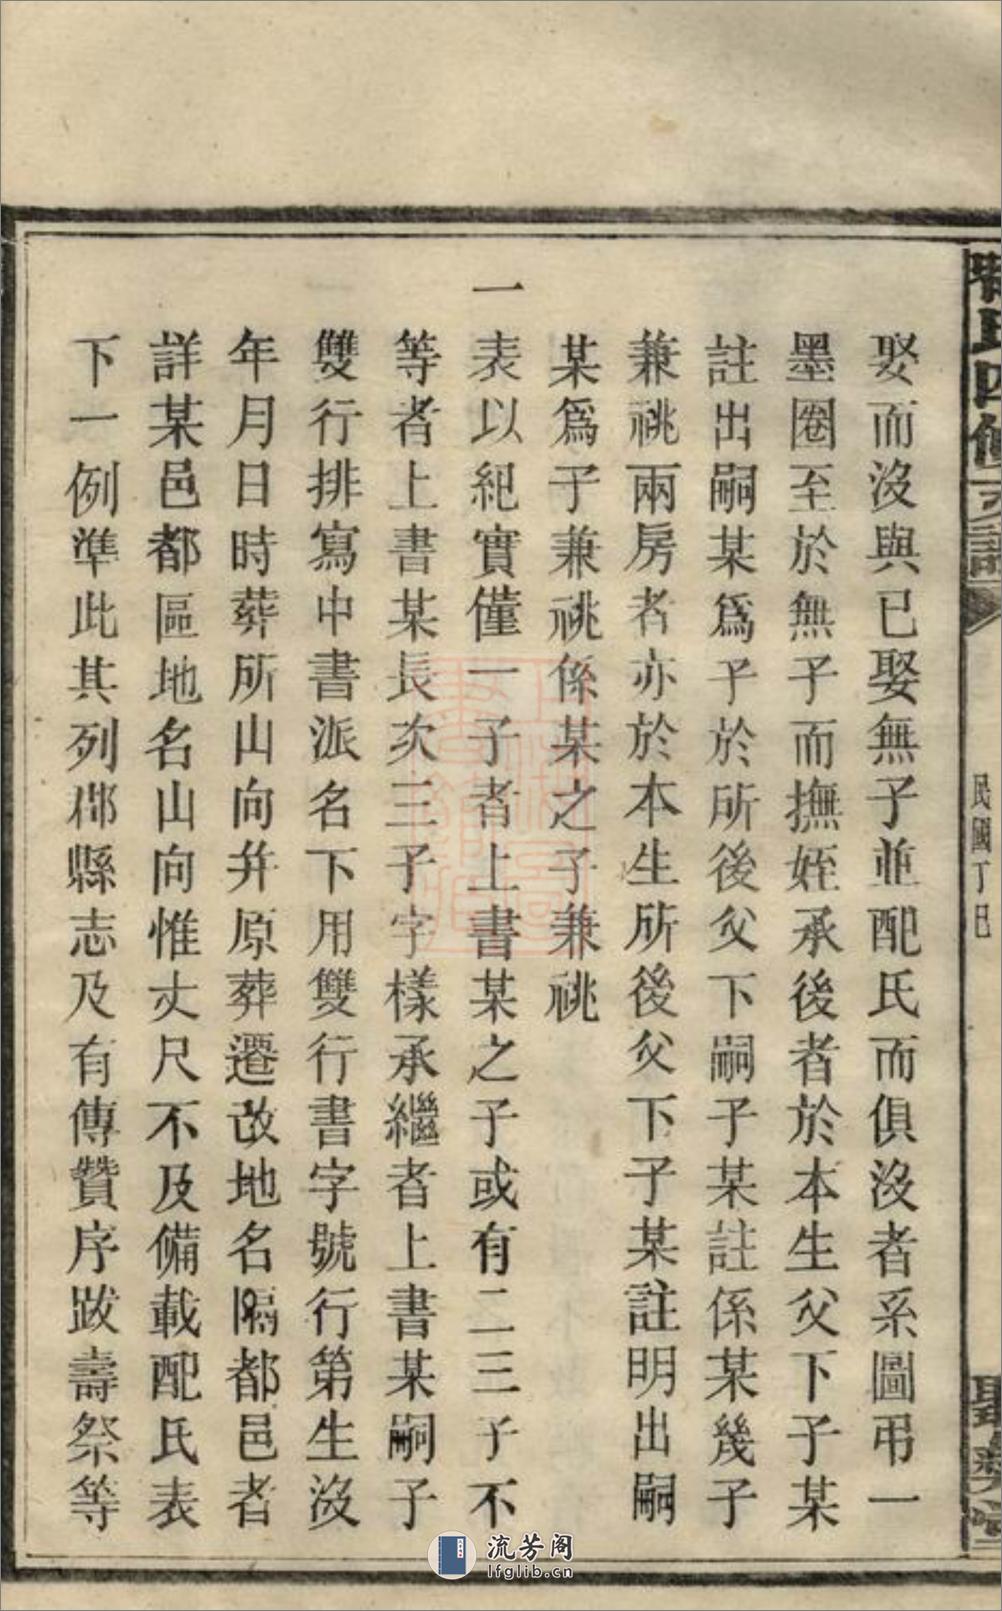 娶而沒與已娶無子並配氏而俱沒者系圖弔一
墨圈至於無子而撫姪承後者於本生父下子某
註出嗣某爲子於所後父下嗣子某註係某幾子
兼祧兩房者亦於本生所後父下子某註明出嗣
某爲子兼祧係某之子兼祧
一表以紀實僅一子者上書某之子或有二三子不
等者上書某長次三子字樣承繼者上書某嗣子
雙行排寫中書派名下用雙行書字號行第生沒
年月日時葬所山向并原葬遷改地名隔都邑者
詳某邑都區地名山向惟丈尺不及備載配氏表
下一例準此其列郡縣志及有傳贊序跋壽祭等
氏四修
譜
民國丁巳
堂
流芳阁
lfglib.cn